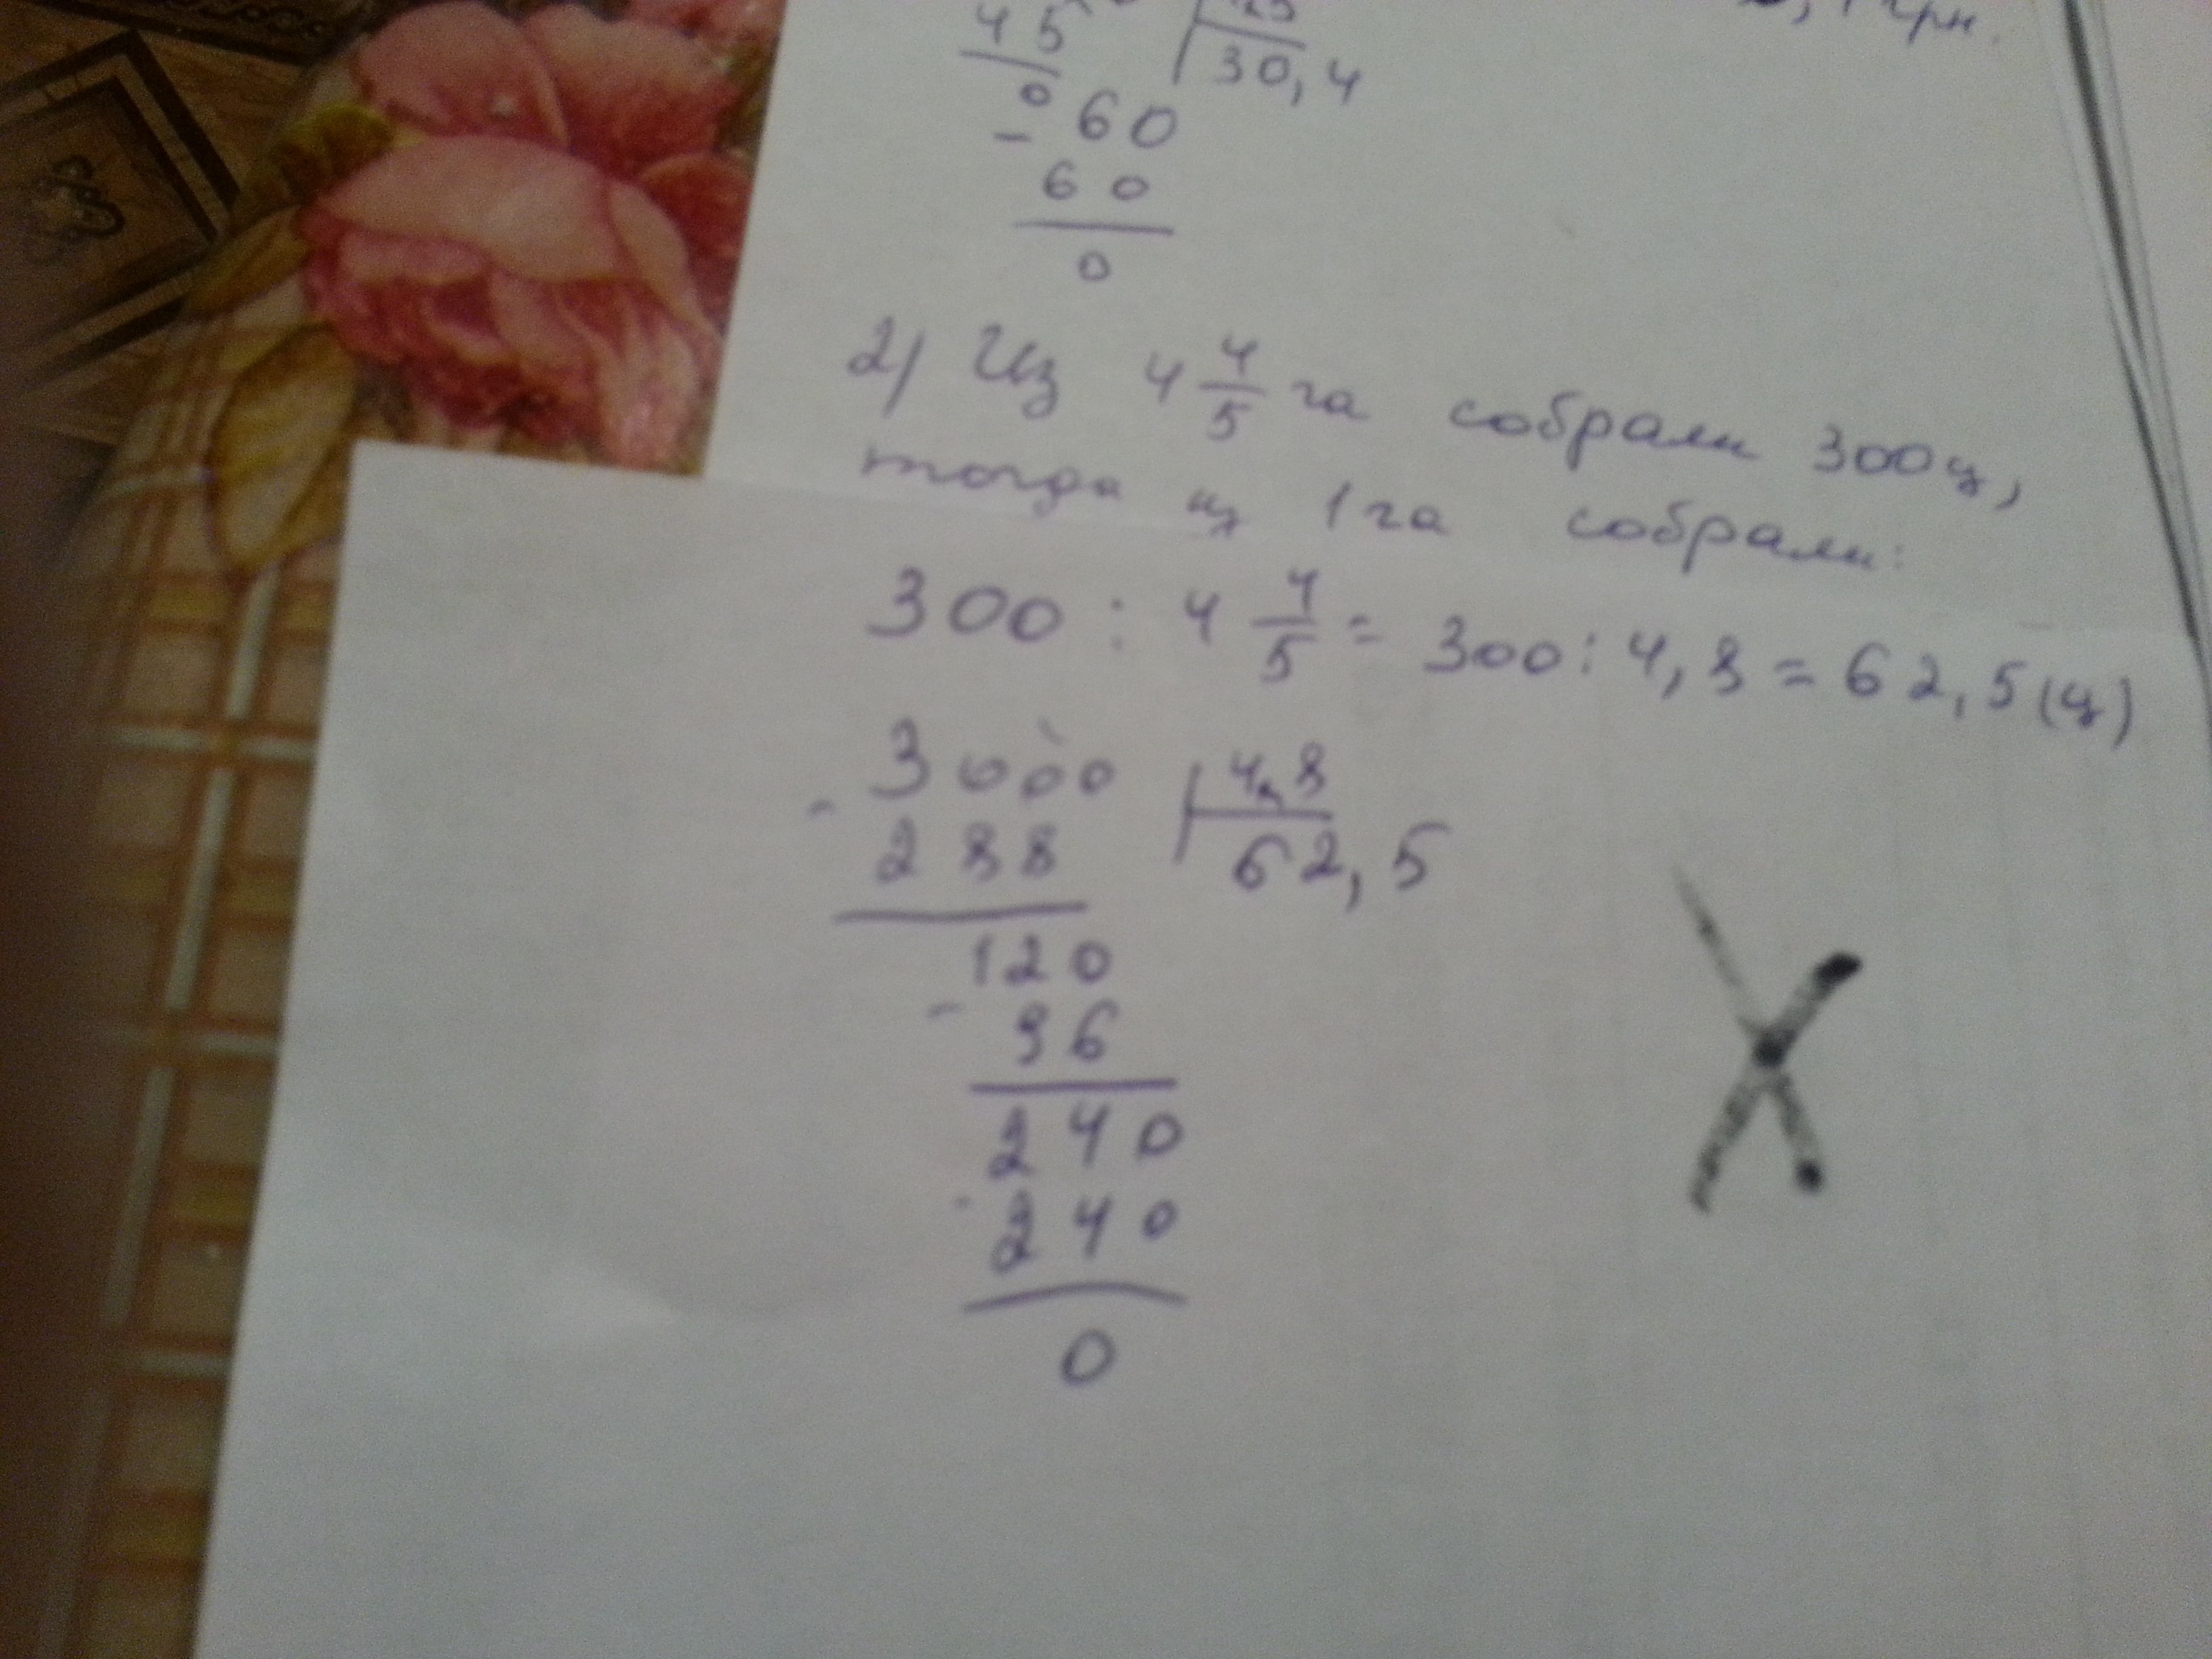 45
30,4
0 60
- 
60
0
2) Из 4 4/5 га собрали 300ц,
тогда из 1 га собрали:
300 : 4 4/5 = 300 : 4,8 = 62,5 (ц)
3000 | 4,8
- 288 | 62,5
120
- 96
240
- 240
0